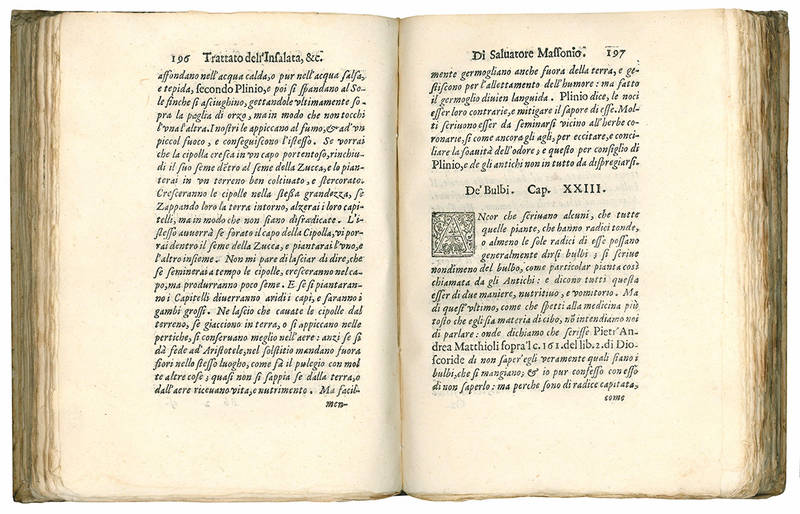 196 Trattato dell'Insalata, &c.
affondano nell'acqua calda, o pur nell'acqua salsa,
e tepida, secondo Plinio, e poi si spandano al So-
le finche si asciughino, gettandole vltimamente so-
pra la paglia di orzo, ma in modo che non tocchi
l'vna l'altra. I nostri le appiccano al fumo, & ad vn
piccol fuoco, e conseguiscono l'istesso. Se vorrai
che la cipolla cresca in vn capo portentoso, rinchiu-
di il suo seme dẽtro al seme della Zucca, e lo pian-
terai in vn terreno ben coltiuato, e stercorato.
Cresceranno le cipolle nella stessa grandezza, se
Zappando loro la terra intorno, alzerai i loro capi-
telli, ma in modo che non siano disradicate. L'i-
stesso auuerrà se forato il capo della Cipolla, vi por-
rai dentro il seme della Zucca, e piantarai l'vno, e
l'altro insieme. Non mi pare di lasciar di dire, che
se seminerai a tempo le cipolle, cresceranno nel ca-
po, ma produrranno poco seme. E se si piantaran-
no i Capitelli diuerranno aridi i capi, e saranno i
gambi grossi. Ne lascio che cauate le cipolle dal
terreno, se giacciono in terra, o si appiccano nelle
pertiche, si conseruano meglio nell'aere: anzi se si
dà fede ad Aristotele, nel solstitio mandano fuora
fiori nello stesso luogho, come fà il pulegio con mol
te altre cose; quasi non si sappia se dalla terra, o
dall'aere riceuano vita, e nutrimento. Ma facil-
men-
Di Saluatore Massonio. 197
mente germogliano anche fuora della terra, e ge-
stiscono per l'allettamento dell'humore: ma fatto
il germoglio diuien languida. Plinio dice, le noci
esser loro contrarie, e mitigare il sapore di esse. Mol
ti scriuono esser da seminarsi vicino all'herbe co-
ronarie, si come ancora gli agli, per eccitare, e conci-
liare la soauità dell'odore; e questo per consiglio di
Plinio, e de gli antichi non in tutto da dispregiarsi.
De' Bulbi. Cap. XXIII.
ANcor che scriuano alcuni, che tutte
quelle piante, che hanno radici tonde,
o almeno le sole radici di esse possano
generalmente dirsi bulbi; si scriue
nondimeno del bulbo, come particolar pianta così
chiamata da gli Antichi: e dicono tutti questa
esser di due maniere, nutritiuo, e vomitorio. Ma
di quest'vltimo, come che spetti alla medicina più
tosto che egli sia materia di cibo, nõ intendiamo noi
di parlare: onde dichiamo che scrisse Pietr'An-
drea Matthioli sopra 'l c. 161. del lib. 2. di Dio-
scoride di non saper'egli veramente quali siano i
bulbi, che si mangiano; & io pur confesso con esso
di non saperlo: ma perche sono di radice capitata,
come